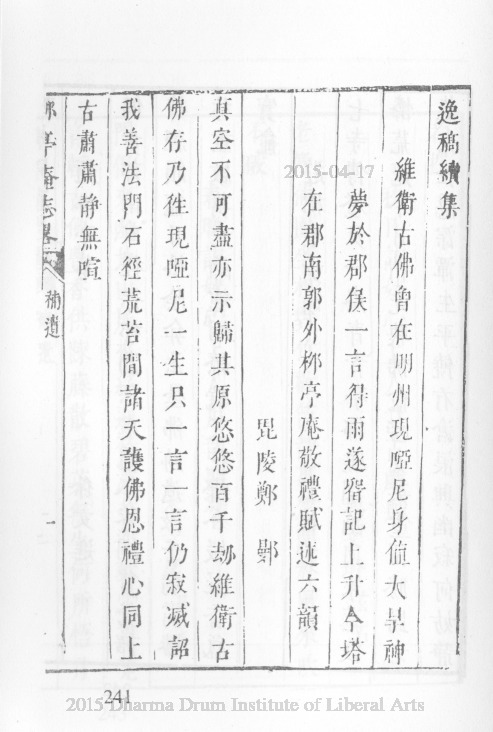 逸稿續集
維衛古佛曾在明州現啞尼身值大旱神
夢於郡侯一言得雨遂留記上升今塔
在郡南郭外栁亭庵敬禮賦述六韻
毘陵鄭鄤
真空不可盡亦示歸其原悠悠百千刼維衛古
佛存乃徃現啞尼一生只一言一言仍寂滅詔
我善法門石徑荒苔間諸天護佛恩禮心同上
古肅肅静無喧
亭庵志畧
補遺
一
241
2015-04-17
2015 Dharma Drum Institute of Liberal Arts